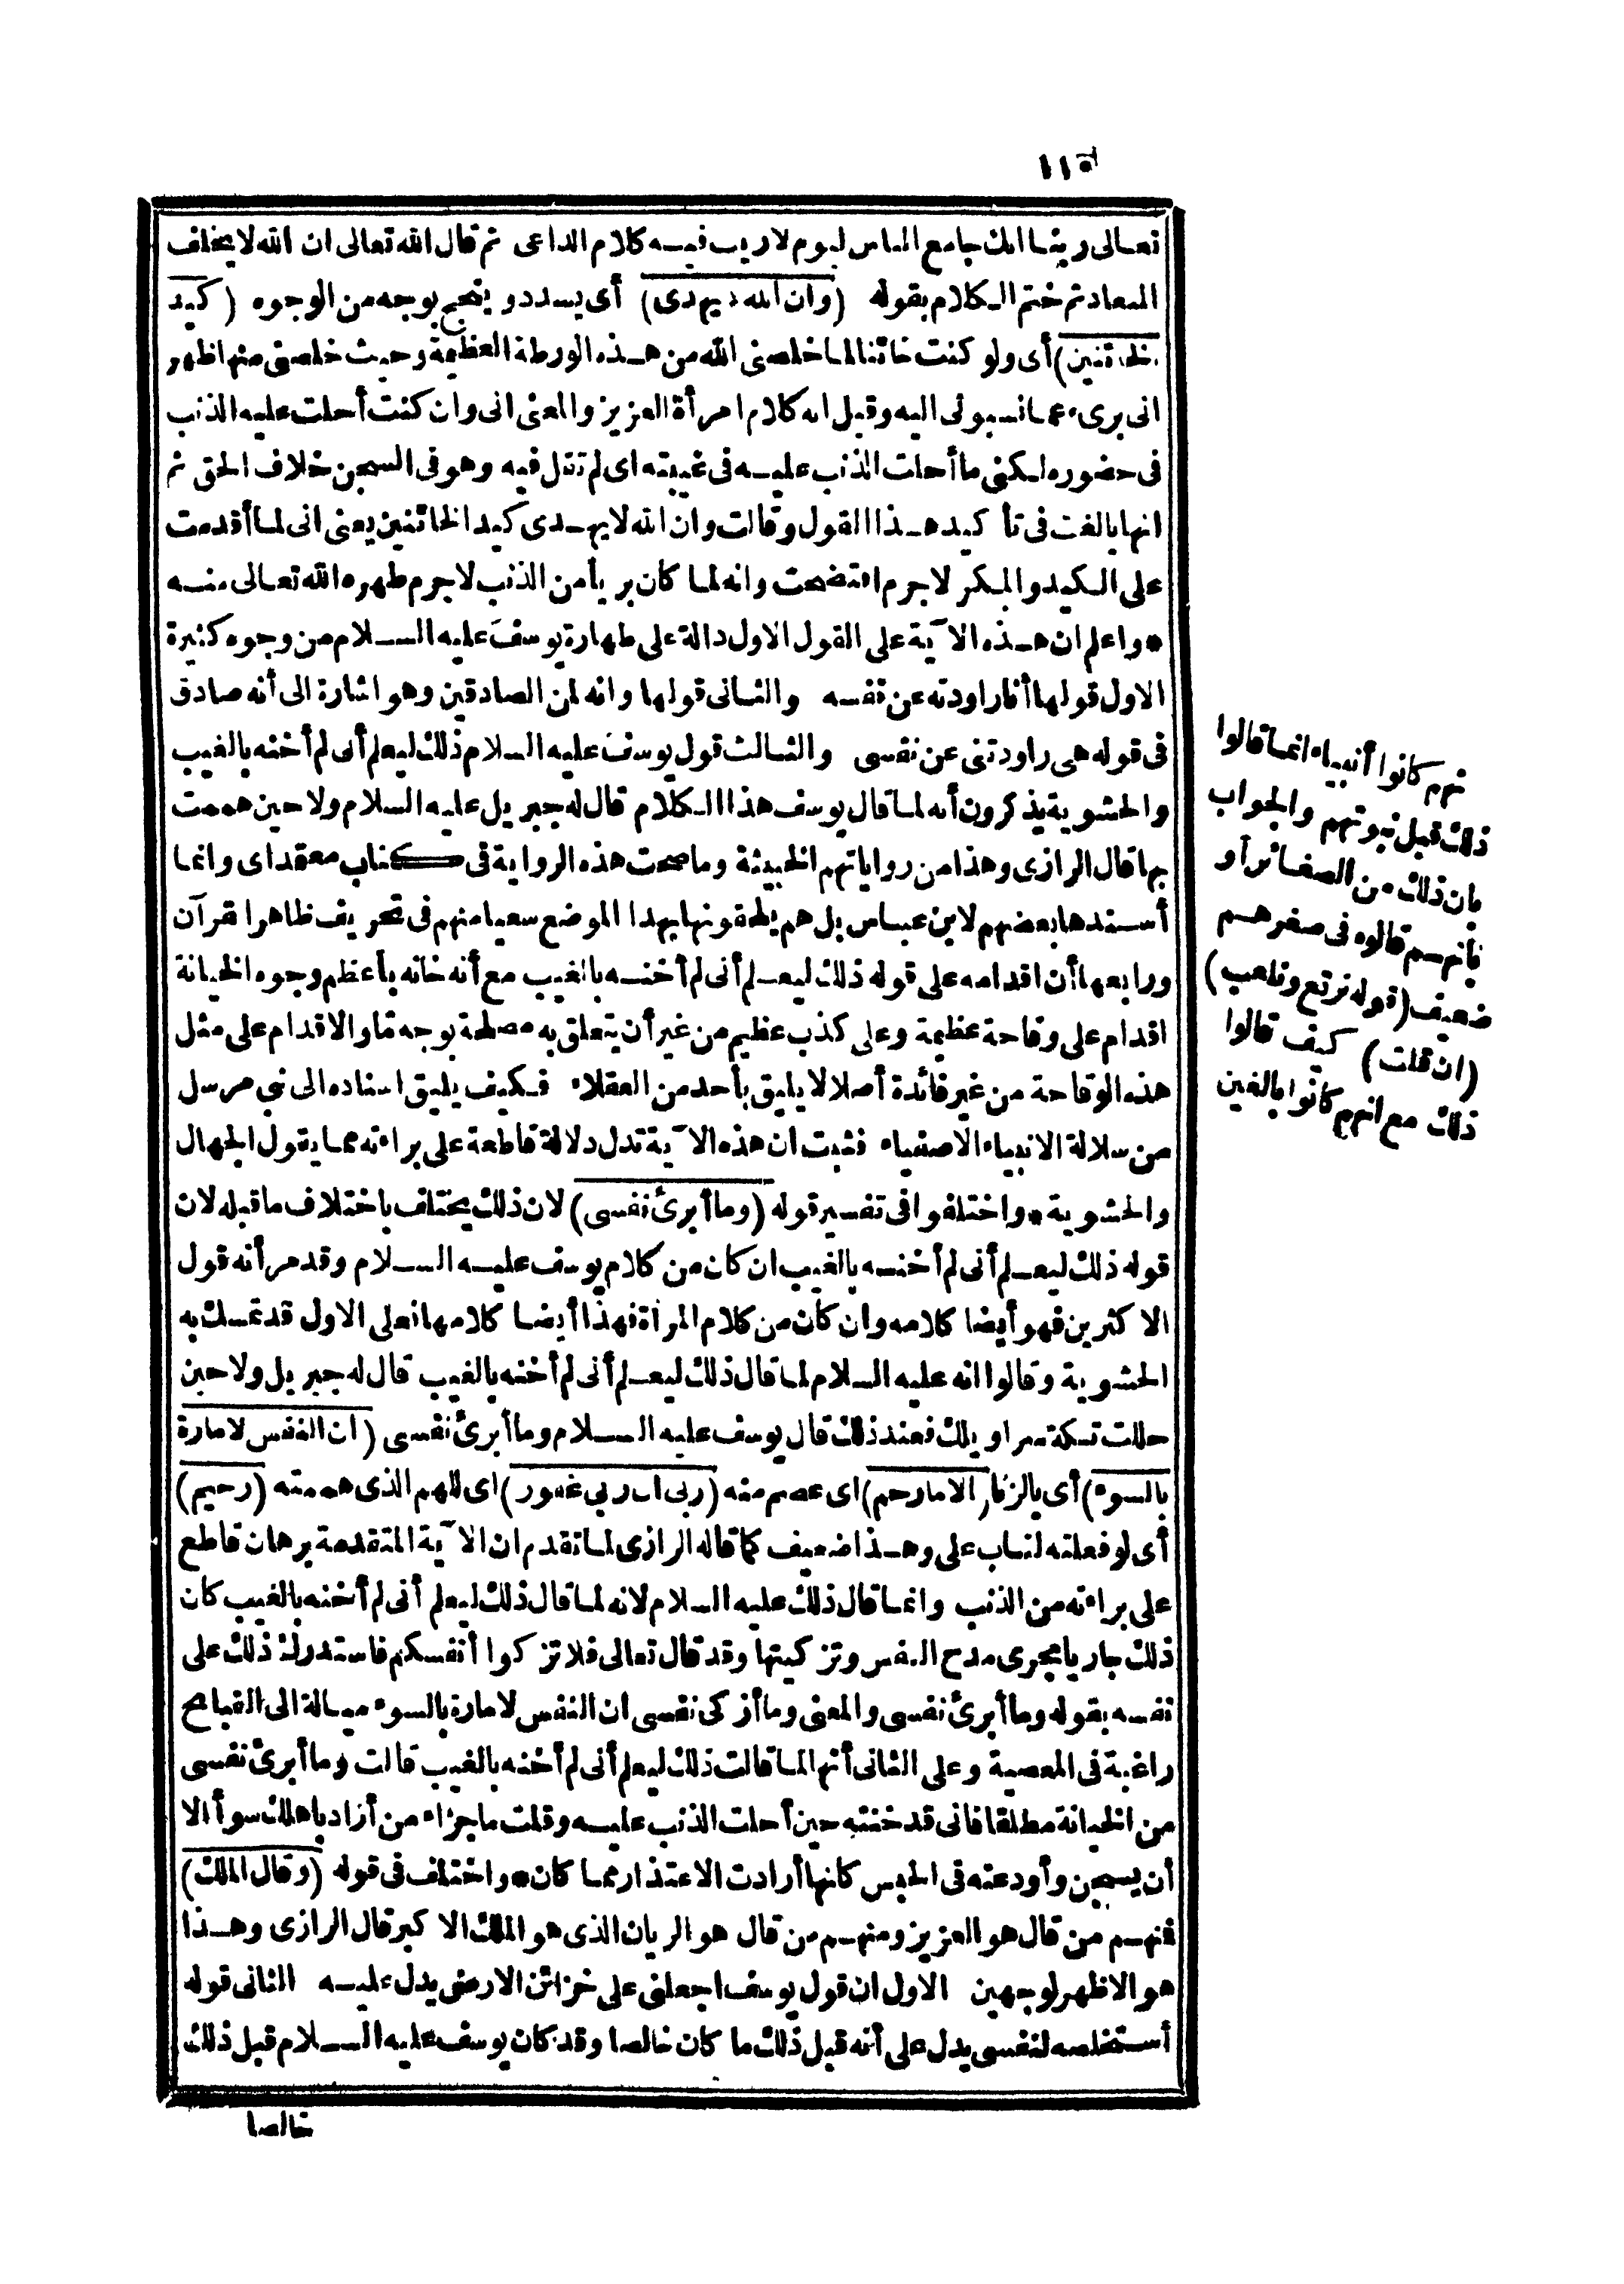 ١١٥
تعالى ربنا انك جامع الناس ليوم لا ريب فيه كلام الداعى ثم قال الله تعالى ان الله لا يخلف
الميعاد ثم ختم الكلام بقوله (وان الله لا يهدى) أى يسدد و ينجح بوجه من الوجوه (كيد
الخائنين) أى ولو كنت خائنا لما خلصنى الله من هذه الورطة العظيمة وحيث خلصنى منها ظهر
انى برىء عما نسبونى اليه وقيل انه كلام امرأة العزيز والمعنى انى وان كنت أحلت عليه الذنب
فى حضوره لكنى ما أحلت الذنب عليه فى غيبته اى لم تقل فيه وهو فى السجن خلاف الحق ثم
انها بالغت فى تأكيد هذا القول وقالت وان الله لا يهدى كيد الخائنين يعنى انى لما أقدمت
على الكيد والمكر لا جرم افتضحت وانه لما كان بريأ من الذنب لا جرم طهره الله تعالى منه
* واعلم ان هذه الآية على القول الاول دالة على طهارة يوسف عليه السلام من وجوه كثيرة
الاول قولها أنا راودته عن نفسه والثانى قولها وانه لمن الصادقين وهو اشارة الى أنه صادق
فى قوله هى راودتنى عن نفسى والثالث قول يوسف عليه السلام ذلك ليعلم أنى لم أخنه بالغيب
والحشوية يذكرون أنه لما قال يوسف هذا الكلام قال له جبريل عليه السلام ولا حين هممت
بها قال الرازى وهذا من رواياتهم الخبيثة وما صحت هذه الرواية فى كتاب معتمد اى وانما
أسندها بعضهم لابن عباس بل هم يلحقونها بهذا الموضع سعيا منهم فى تحريف ظاهر القرآن
ورابعها أن اقدامه على قوله ذلك ليعلم أنى لم أخنه بالغيب مع أنه خانه بأعظم وجوه الخيانة
اقدام على وقاحة عظيمة وعلى كذب عظيم من غير أن يتعلق به مصلحة بوجه ما والاقدام على مثل
هذه الوقاحة من غير فائدة أصلا لا يليق بأحد من العقلاء فكيف يليق اسناده الى نبي مرسل
من سلالة الانبياء الاصفياء فثبت ان هذه الآية تدل دلالة قاطعة على براءته مما يقول الجهال
والحشوية * واختلفوا فى تفسير قوله (وما أبرئ نفسى) لان ذلك يختلف باختلاف ما قبله لان
قوله ذلك ليعلم أنى لم أخنه بالغيب ان كان من كلام يوسف عليه السلام وقد مر أنه قول
الاكثرين فهو أيضا كلامه وان كان من كلام المرأة فهذا أيضا كلامها فعلى الاول قد تمسك به
الحشوية وقالوا انه عليه السلام لما قال ذلك ليعلم أنى لم أخنه بالغيب قال له جبريل ولا حين
حللت تكة سراويلك فعند ذلك قال يوسف عليه السلام وما أبرئ نفسى (ان النفس لامارة
بالسوء) أى بالزنا (الا ما رحم) اى عصم منه (ربى ان ربي غفور) اى للهم الذى هممته (رحيم)
أى لو فعلته لتاب على وهذا ضعيف كما قاله الرازى لما تقدم ان الآية المتقدمة برهان قاطع
على براءته من الذنب وانما قال ذلك عليه السلام لانه لما قال ذلك ليعلم أنى لم أخنه بالغيب كان
ذلك جاريا مجرى مدح النفس وتزكيتها وقد قال تعالى فلا تزكوا أنفسكم فاستدرك ذلك على
نفسه بقوله وما أبرئ نفسى والمعنى وما أزكى نفسى ان النفس لامارة بالسوء ميالة الى القبائح
راغبة فى المعصية وعلى الثانى أنها لما قالت ذلك ليعلم أنى لم أخنه بالغيب قالت وما أبرئ نفسى
من الخيانة مطلقا فانى قد خنته حين أحلت الذنب عليه وقلت ما جزاء من أراد بأهلك سوأ الا
أن يسجن وأودعته فى الحبس كانها أرادت الاعتذار مما كان * واختلف فى قوله (وقال الملك)
فمنهم من قال هو العزيز ومنهم من قال هو الريان الذى هو الملك الاكبر قال الرازى وهذا
هو الاظهر لوجهين الاول ان قول يوسف اجعلنى على خزائن الارض يدل عليه الثانى قوله
أستخلصه لنفسى يدل على أنه قبل ذلك ما كان خالصا وقد كان يوسف عليه السلام قبل ذلك
خالصا
نهم كانوا أنبياء انما قالوا
ذلك قبل نبوتهم والجواب
بان ذلك من الصغائر أو
بأنهم قالوه فى صغرهم
ضعيف (قوله نرتع ونلعب)
(ان قلت) كيف قالوا
ذلك مع انهم كانوا بالغين